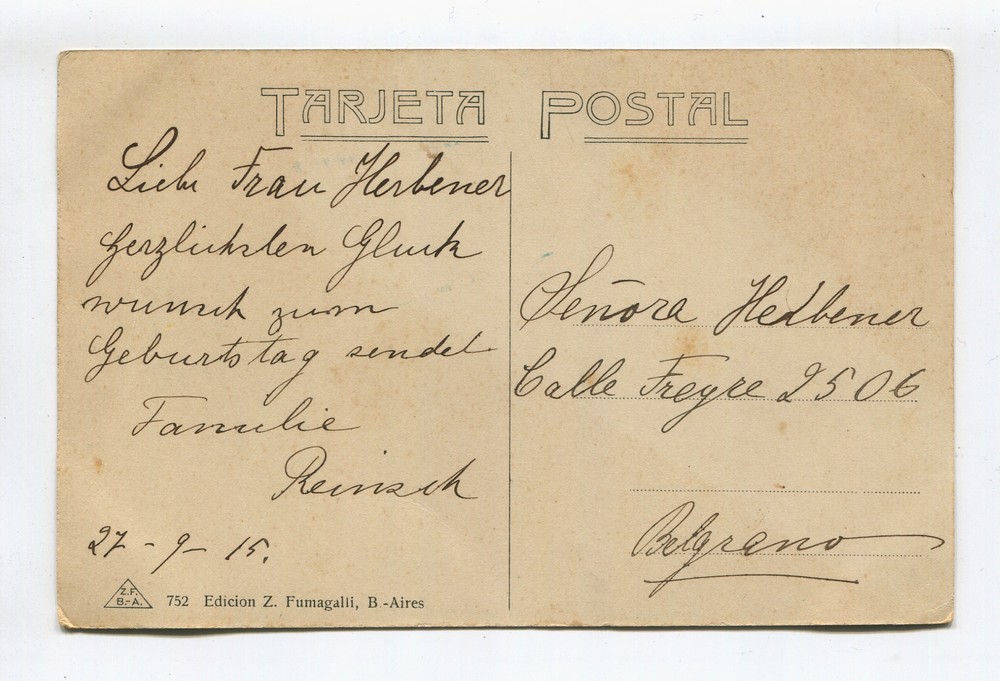 TARJETA POSTAL
Liebe Frau Herbener
Herzlichsten Glück
wunsch zum
Geburtstag sendet
Familie
Reinsch
27-9-15.
Z.F.
B.-A.
752 Edicion Z. Fumagalli, B.-Aires
Señora Hedbener
Calle Freyre 2506
Belgrano